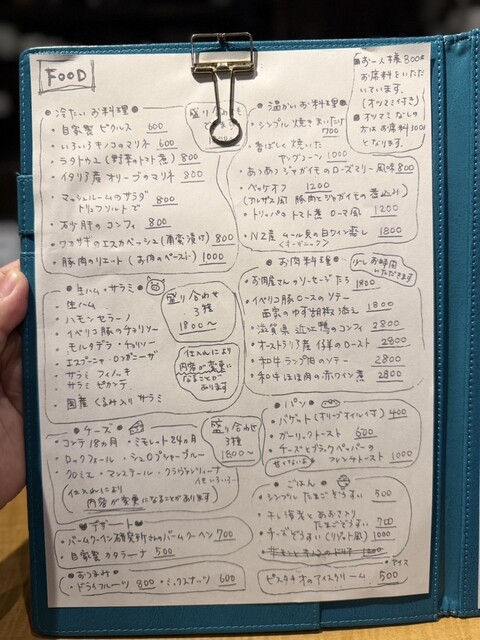 FOOD
■お一人様800¥
お席料をいただいて
います。
(オツマミ付き)
■オツマミなしの
方はお席料100¥
となります。
●冷たいお料理●
・自家製ピクルス 600
・いろいろキノコのマリネ 600
・ラタトゥユ(野菜のトマト煮) 800
・イタリア産オリーブのマリネ 800
・マッシュルームのサラダ
トリュフソルトで 800
・砂肝のコンフィ 800
・ワカサギのエスカベッシュ(南蛮漬け) 800
・豚肉のリエット(お肉のペースト) 1000
盛り合わせも
●温かいお料理●
・シンプル焼きまいたけ
700
・香ばしく焼いた
ヤングコーン 1000
・あつあつジャガイモのローズマリー風味 800
・ベッケオフ 1200
(アルザス風 豚肉とジャガイモの煮込み)
・トリッパのトマト煮 ローマ風 1200
・NZ産 ムール貝の白ワイン蒸し 1800
(オーガニック)
●生ハム・サラミ●
・生ハム
・ハモンセラーノ
・イベリコ豚のチョリソー
・モルタデラ・チョリソー
・サラミ フィノッキ
・サラミ ピカンテ
・国産 くるみ入りサラミ
盛り合わせ
3種
1800〜
仕入れにより
内容が変更に
なることが
あります
●お肉料理●
少しお時間
いただきます
・お肉屋さんのソーセージたち 1800
・イベリコ豚ロースのソテー
自家のゆず胡椒添え 1800
・滋賀県 近江鴨のコンフィ 2800
・オーストラリア産 仔羊のロースト 2800
・和牛ランプ肉のソテー 2800
・和牛ほほ肉の赤ワイン煮 2800
●チーズ●
・コンテ18ヵ月・ミモレット24ヵ月
・ロックフォール・シェロプシャーブルー
・クロミエ・マンステール・クラヴァンソリーナ
他いろいろ…
仕入れにより
内容が変更になることがあります
盛り合わせ
3種
1800〜
●パン●
・バゲット(オリーブオイル付) 400
・ガーリックトースト 600
・チーズとブラックペッパーの
甘くないよ フレンチトースト 1000
●デザート●
・バームクーヘン研究所さんのバームクーヘン 700
・自家製カタラーナ 500
●おつまみ●
・ドライフルーツ 800 ・ミックスナッツ 600
●ごはん●
・シンプルたまごぞうすい 500
・干し海老とあおさノリ
たまごぞうすい 700
・チーズぞうすい(リゾット風) 1000
・アイス
ピスタチオのアイスクリーム 500